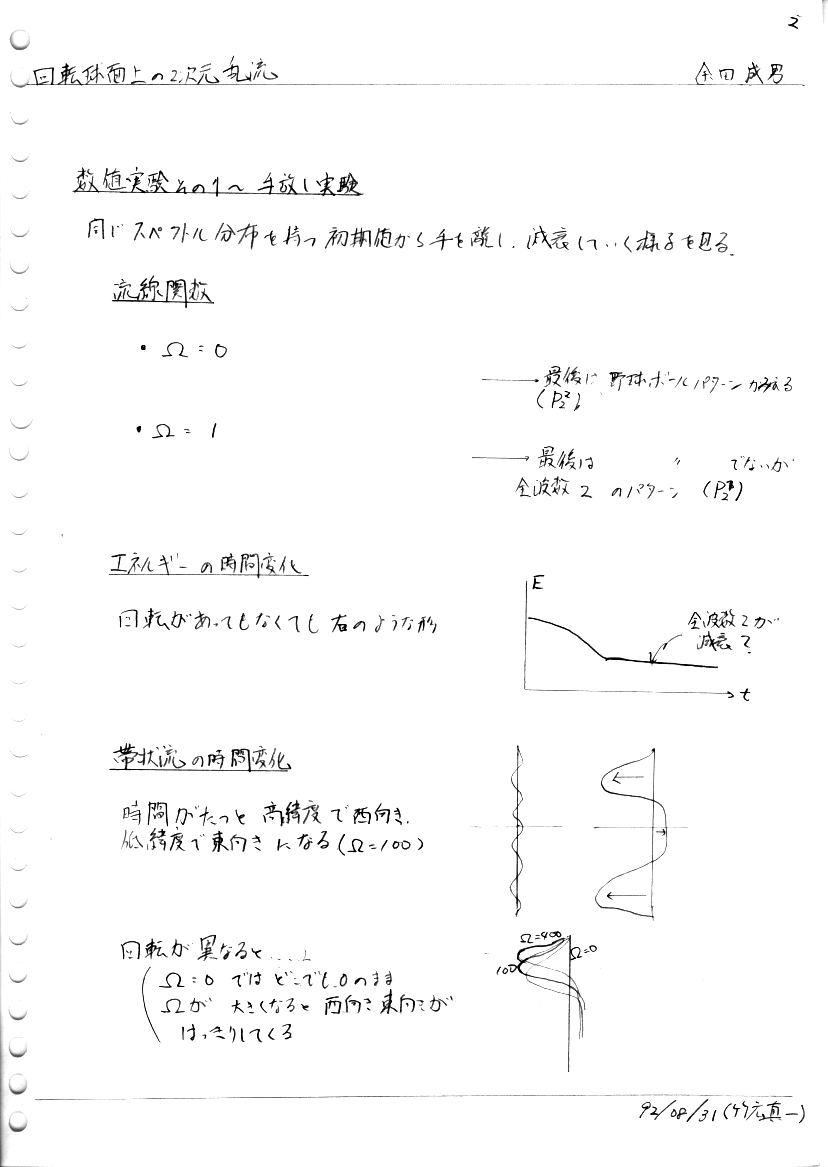 2
回転球面上の2次元乱流 余田成男
数値実験その1〜手放し実験
同じスペクトル分布を持つ初期値から手を離し、減衰していく様子を見る.
流線関数
・Ω = 0
→最後に野球ボールパターンがみえる
(P₂²)
・Ω = 1
→最後は 〃 でないが
全波数2のパターン
エネルギーの時間変化
回転があってもなくても右のような形
E
全波数2が
減衰?
t
帯状流の時間変化
時間がたつと高緯度で西向き.
低緯度で東向きになる(Ω=100)
回転が異なると.....
Ω=0ではどこでも0のまま
Ωが大きくなると西向き東向きが
はっきりしてくる
Ω=400
Ω=0
100
92/08/31(竹広真一)